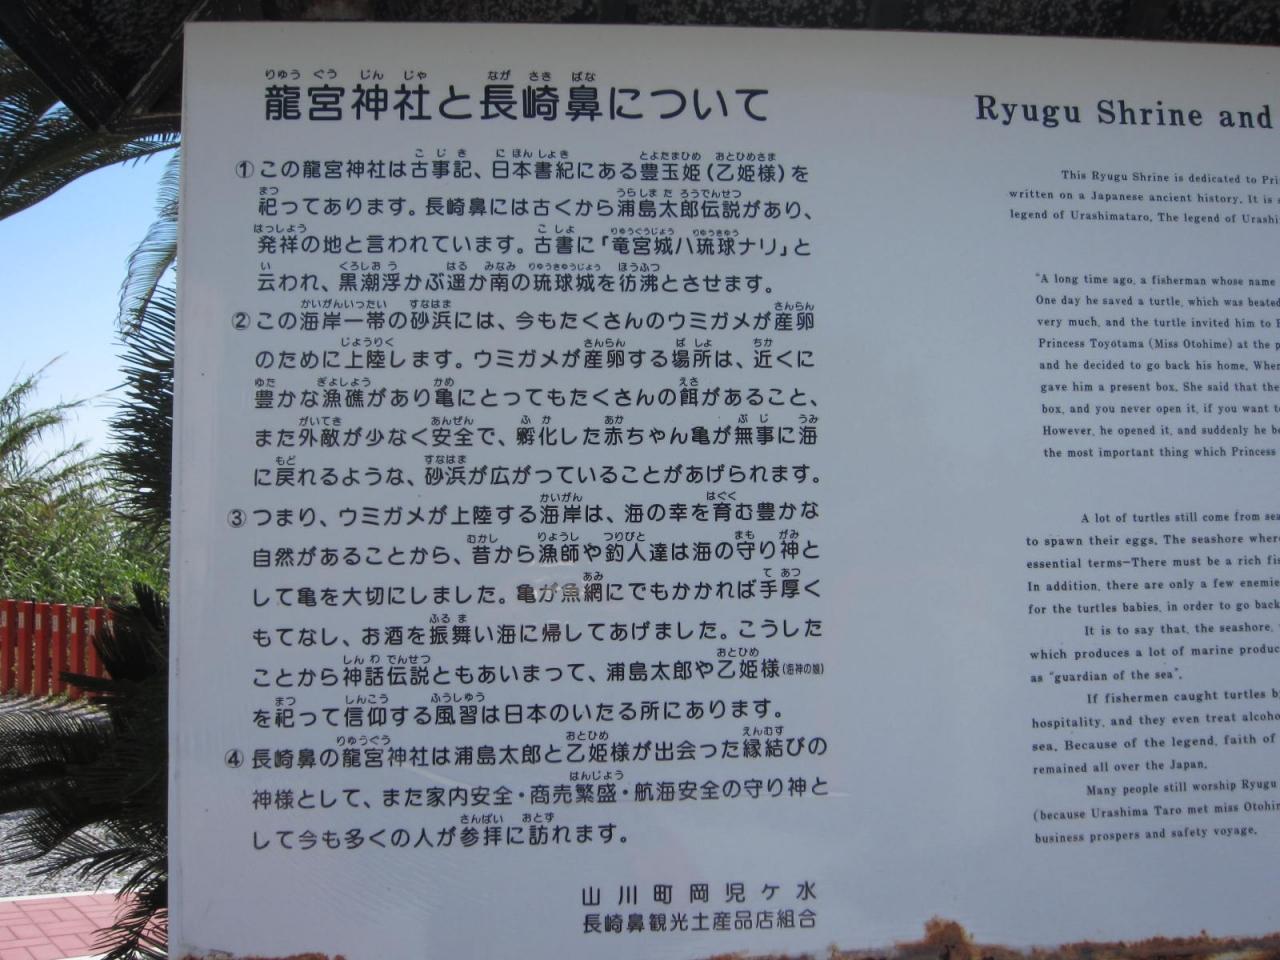 龍宮神社と長崎鼻について
①この龍宮神社は古事記、日本書紀にある豊玉姫(乙姫様)を
祀ってあります。長崎鼻には古くから浦島太郎伝説があり、
発祥の地と言われています。古書に「竜宮城ハ琉球ナリ」と
云われ、黒潮浮かぶ遥か南の琉球城を彷沸とさせます。
②この海岸一帯の砂浜には、今もたくさんのウミガメが産卵
のために上陸します。ウミガメが産卵する場所は、近くに
豊かな漁礁があり亀にとってもたくさんの餌があること、
また外敵が少なく安全で、孵化した赤ちゃん亀が無事に海
に戻れるような、砂浜が広がっていることがあげられます。
③つまり、ウミガメが上陸する海岸は、海の幸を育む豊かな
自然があることから、昔から漁師や釣人達は海の守り神と
して亀を大切にしました。亀が魚網にでもかかれば手厚く
もてなし、お酒を振舞い海に帰してあげました。こうした
ことから神話伝説ともあいまって、浦島太郎や乙姫様(海神の娘)
を祀って信仰する風習は日本のいたる所にあります。
④長崎鼻の龍宮神社は浦島太郎と乙姫様が出会った縁結びの
神様として、また家内安全・商売繁盛・航海安全の守り神と
して今も多くの人が参拝に訪れます。
山川町岡児ケ水
長崎鼻観光土産品店組合
Ryugu Shrine and
This Ryugu Shrine is dedicated to Pri
written on a Japanese ancient history. It is
legend of Urashimataro. The legend of Urashi
"A long time ago, a fisherman whose name
One day he saved a turtle, which was beated
very much, and the turtle invited him to
Princess Toyotama (Miss Otohime) at the p
and he decided to go back his home. When
gave him a present box. She said that the
box, and you never open it, if you want t
However, he opened it, and suddenly he b
the most important thing which Princess
A lot of turtles still come from sea
to spawn their eggs. The seashore wher
essential terms—There must be a rich fis
In addition, there are only a few enemie
for the turtles babies, in order to go back
It is to say that, the seashore,
which produces a lot of marine produc
as "guardian of the sea".
If fishermen caught turtles b
hospitality, and they even treat alcoho
sea. Because of the legend, faith of
remained all over the Japan.
Many people still worship Ryugu
(because Urashima Taro met miss Otohi
business prospers and safety voyage.